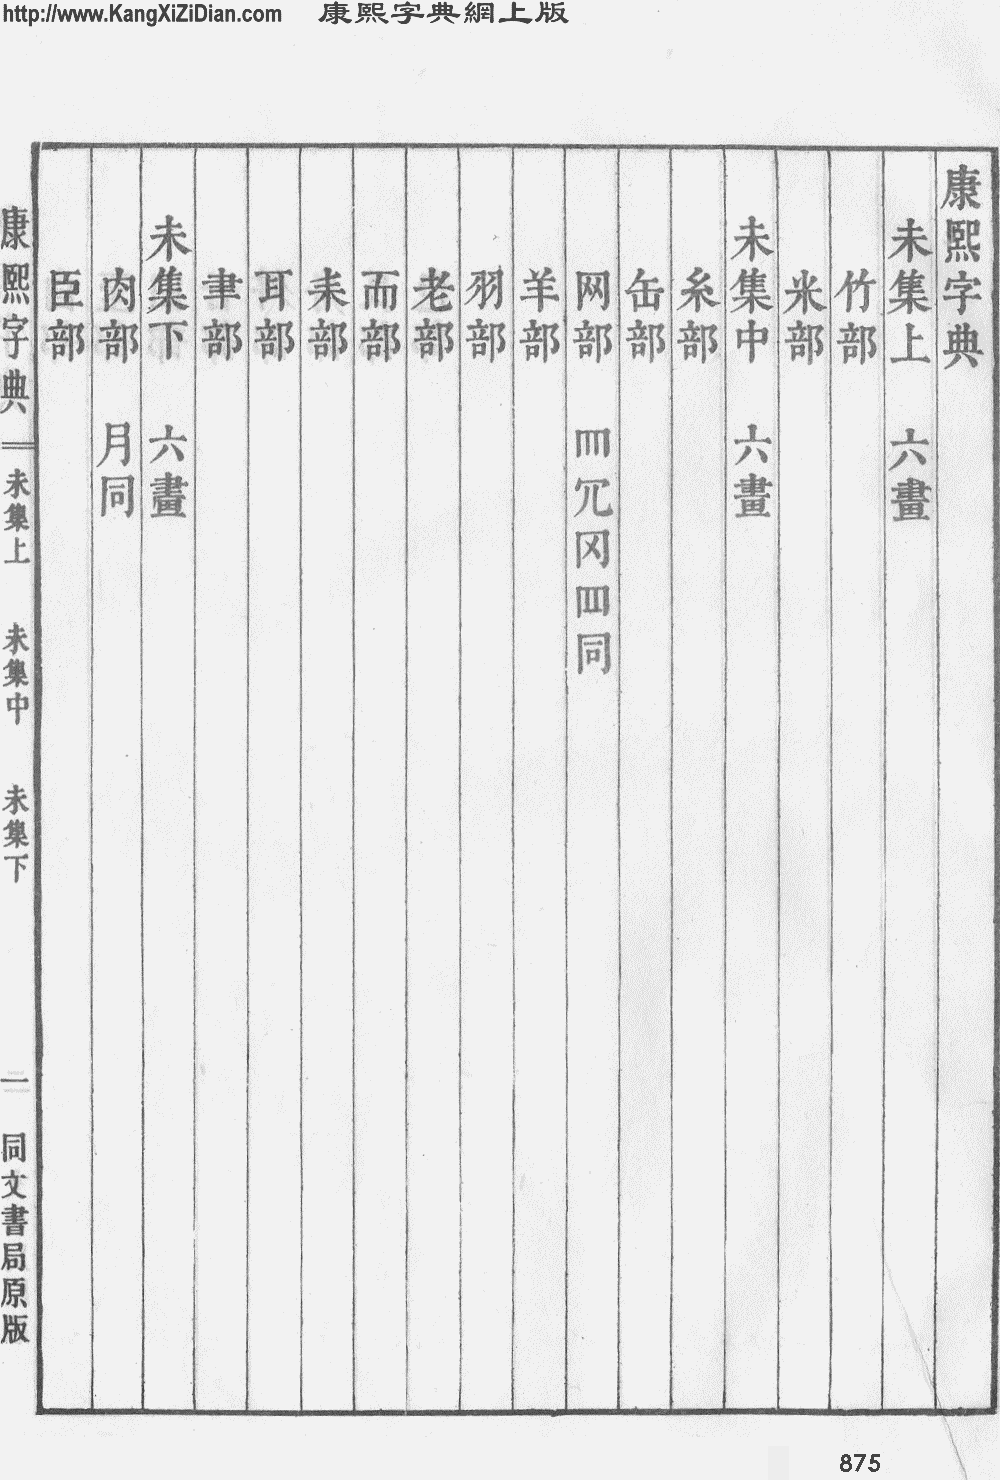 http://www.KangXiZiDian.com 康熙字典網上版
康熙字典
未集上 六畫
竹部
米部
未集中 六畫
糸部
缶部
网部 罒冗𦉰罒同
羊部
羽部
老部
而部
耒部
耳部
聿部
未集下 六畫
肉部 月同
臣部
康熙字典 未集上 未集中 未集下 一 同文書局原版
875